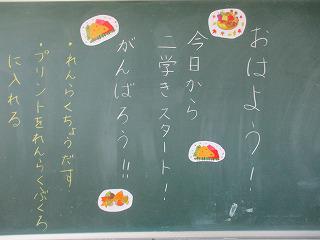 おはよう！
今日から
二学きスタート！
がんばろう!!
・れんらくちょうだす
・プリントをれんらくぶくろ
に入れる